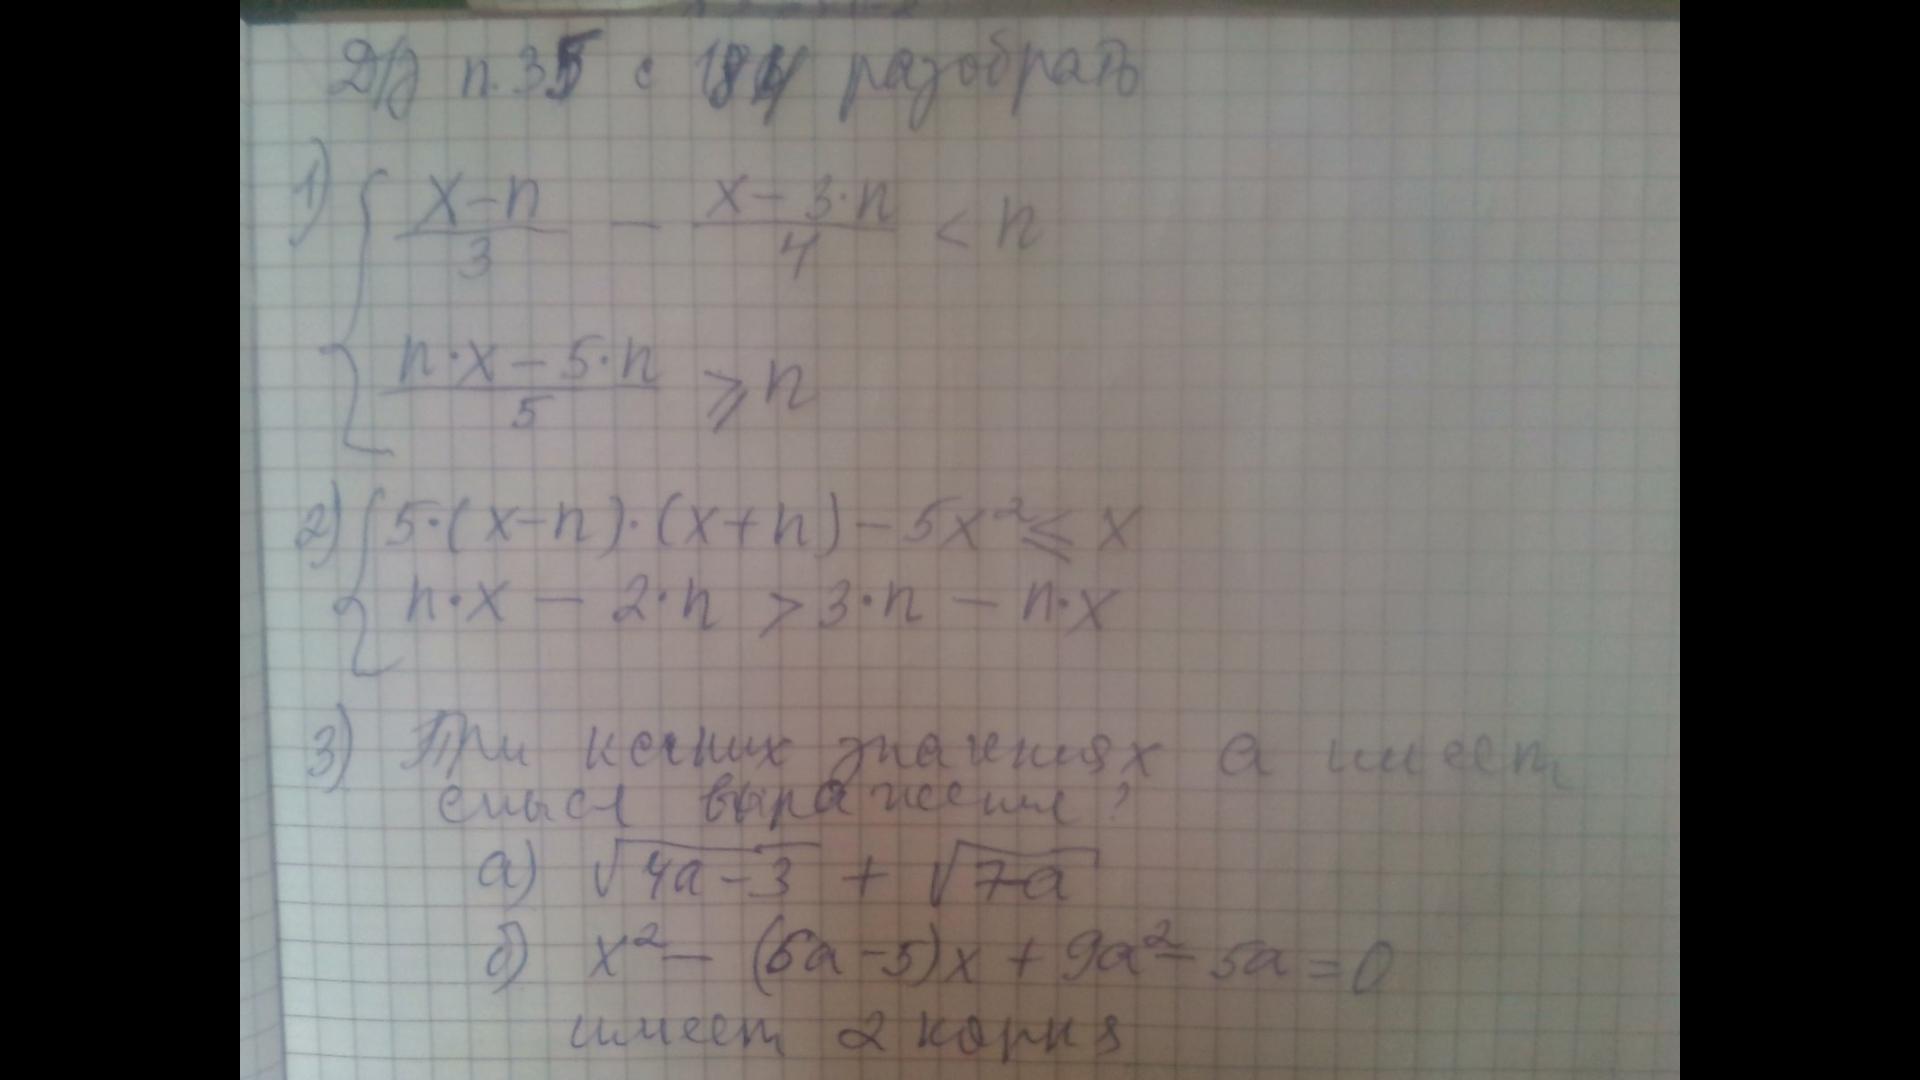 Д/З п.35 с 184 разобрать
1) { (x-n)/3 - (x-3·n)/4 < n
(n·x-5·n)/5 ⩾ n
2) { 5·(x-n)·(x+n)-5x² ⩽ x
n·x - 2·n > 3·n - n·x
3) При каких значениях а имеет
смысл выражение?
а) √(4a-3) + √(7-a)
б) x² - (6a-5)x + 9a² - 5a = 0
имеет 2 корня